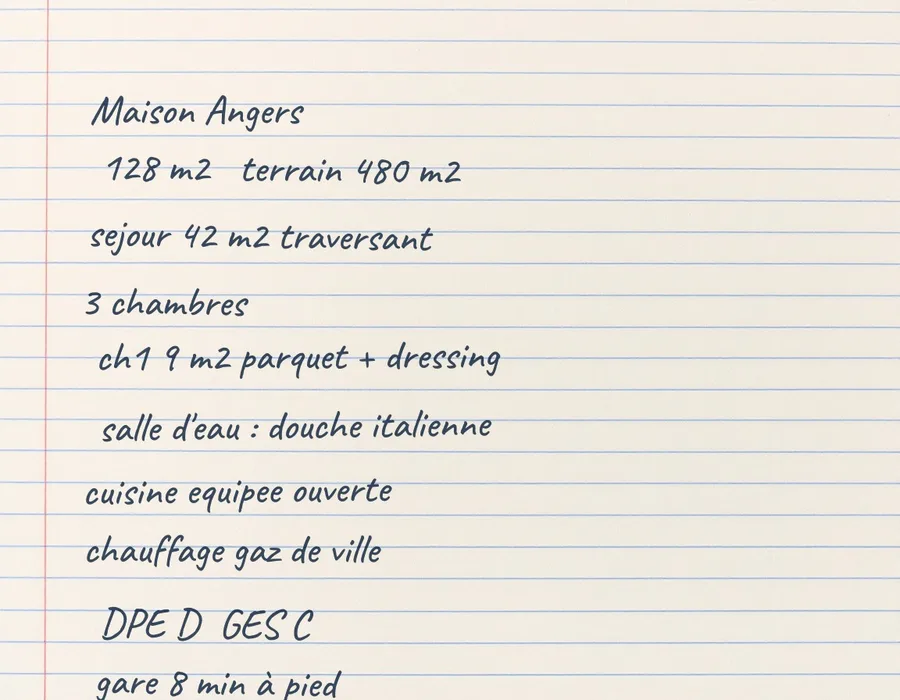 Maison Angers
128 m2 terrain 480 m2
sejour 42 m2 traversant
3 chambres
ch1 9 m2 parquet + dressing
salle d'eau : douche italienne
cuisine equipee ouverte
chauffage gaz de ville
DPE D GES C
gare 8 min à pied